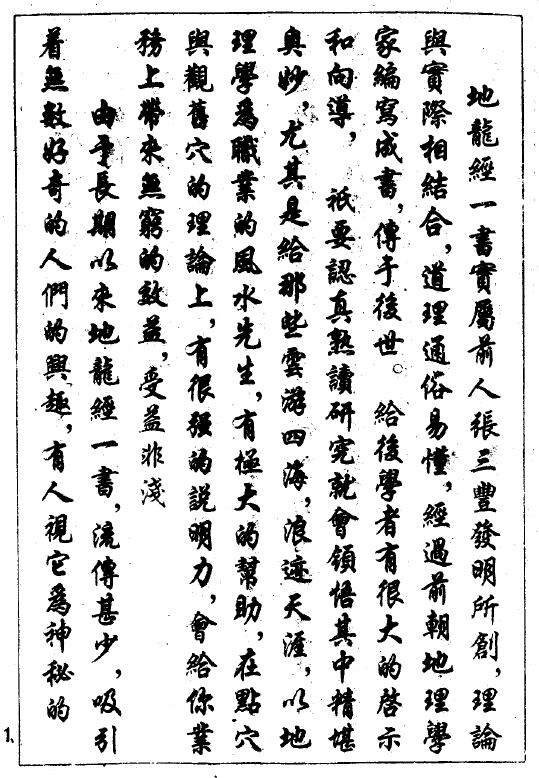 地龍經一書實屬前人張三豐發明所創，理論
與實際相結合，道理通俗易懂，經過前朝地理學
家編寫成書，傳于後世。給後學者有很大的啓示
和向導，祇要認真熟讀研究就會領悟其中精堪
奥妙，尤其是給那些雲游四海，浪迹天涯，以地
理學爲職業的風水先生，有極大的幫助，在點穴
與觀舊穴的理論上，有很强的説明力，會給你業
務上帶來無窮的效益，受益非淺
由于長期以來地龍經一書，流傳甚少，吸引
着無數好奇的人們的興趣，有人視它爲神秘的
1、